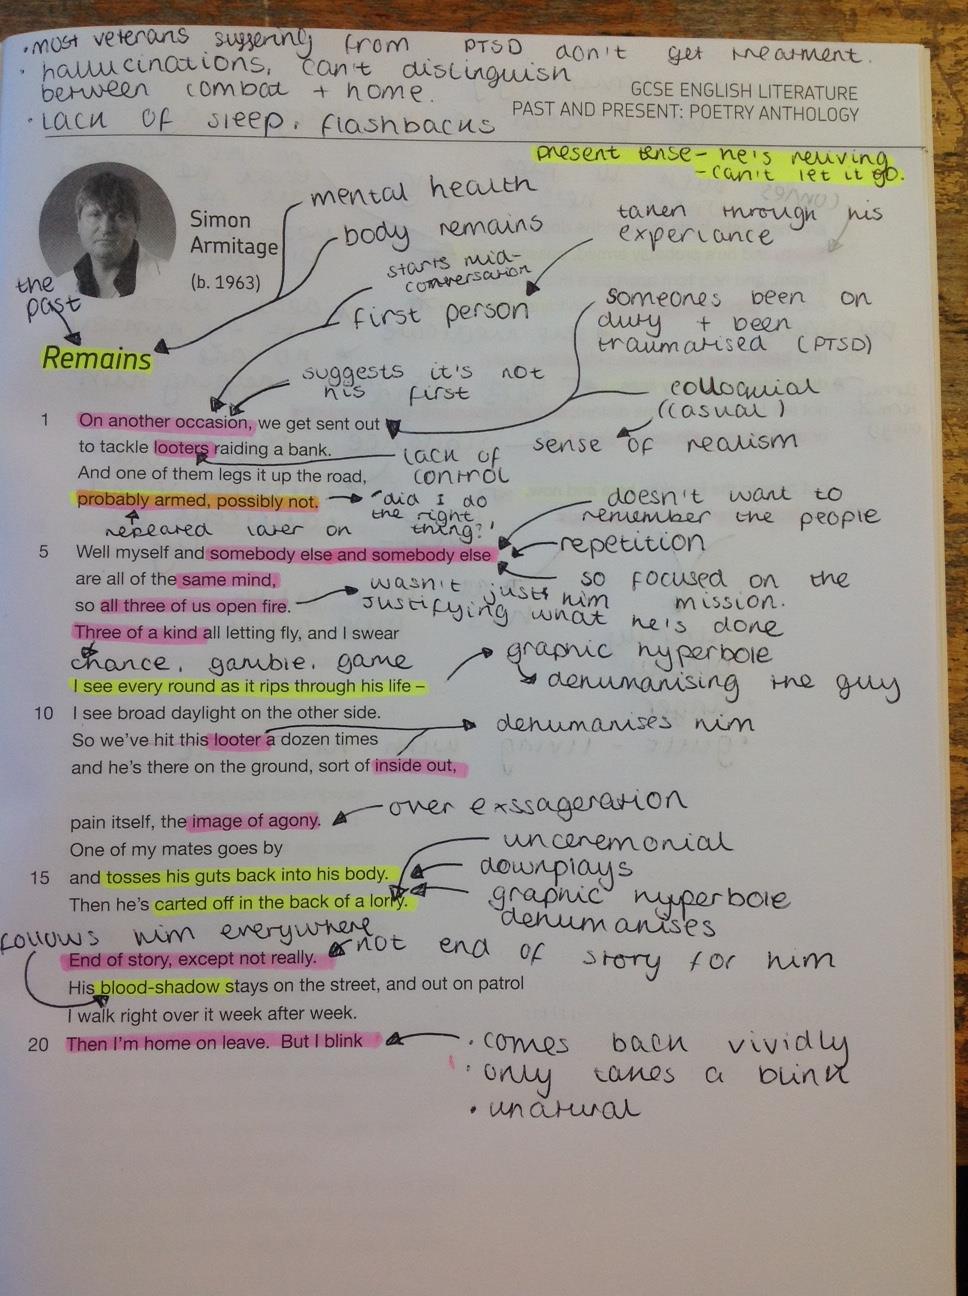 ·most veterans suffering from PTSD don't get treatment.
· hallucinations, can't distinguish
between combat + home.
· Lack of sleep, flashbacks
GCSE ENGLISH LITERATURE
PAST AND PRESENT: POETRY ANTHOLOGY
present tense - he's reliving
- can't let it go.
Simon
Armitage
(b. 1963)
mental health
body remains
taken through his
experiance
starts mid-
conversation
first person
the
past
Remains
someones been on
duty + been
traumatised (PTSD)
suggests it's not
his first
colloquial
(casual)
sense of realism
1 On another occasion, we get sent out
to tackle looters raiding a bank.
lack of
control
And one of them legs it up the road,
probably armed, possibly not.
"did I do
the right
thing?'
repeated later on
doesn't want to
remember the people
repetition
5 Well myself and somebody else and somebody else
are all of the same mind,
so focused on the
mission.
so all three of us open fire.
wasn't just him
justifying what he's done
Three of a kind all letting fly, and I swear
chance, gamble, game
graphic hyperbole
dehumanising the guy
I see every round as it rips through his life –
10 I see broad daylight on the other side.
So we've hit this looter a dozen times
dehumanises him
and he's there on the ground, sort of inside out,
over exssageration
pain itself, the image of agony.
One of my mates goes by
unceremonial
15 and tosses his guts back into his body.
downplays
Then he's carted off in the back of a lorry.
graphic hyperbole
dehumanises
follows him everywhere
not end of story for him
End of story, except not really.
His blood-shadow stays on the street, and out on patrol
I walk right over it week after week.
20 Then I'm home on leave. But I blink
· comes back vividly
· only takes a blink
· unatural